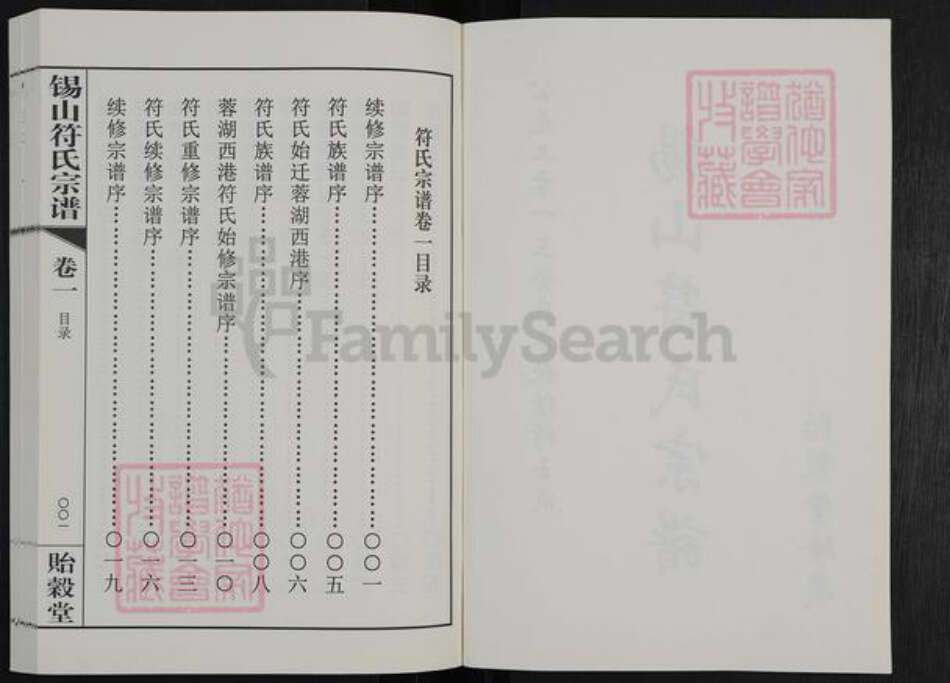 符氏宗谱卷一目录
续修宗谱序……〇〇一
符氏族谱序……〇〇五
符氏始迁蓉湖西港序……〇〇六
符氏族谱序……〇〇八
蓉湖西港符氏始修宗谱序……〇一〇
符氏重修宗谱序……〇一三
符氏续修宗谱序……〇一六
续修宗谱序……〇一九
锡山符氏宗谱
卷一
目录
〇〇一
贻穀堂
FamilySearch